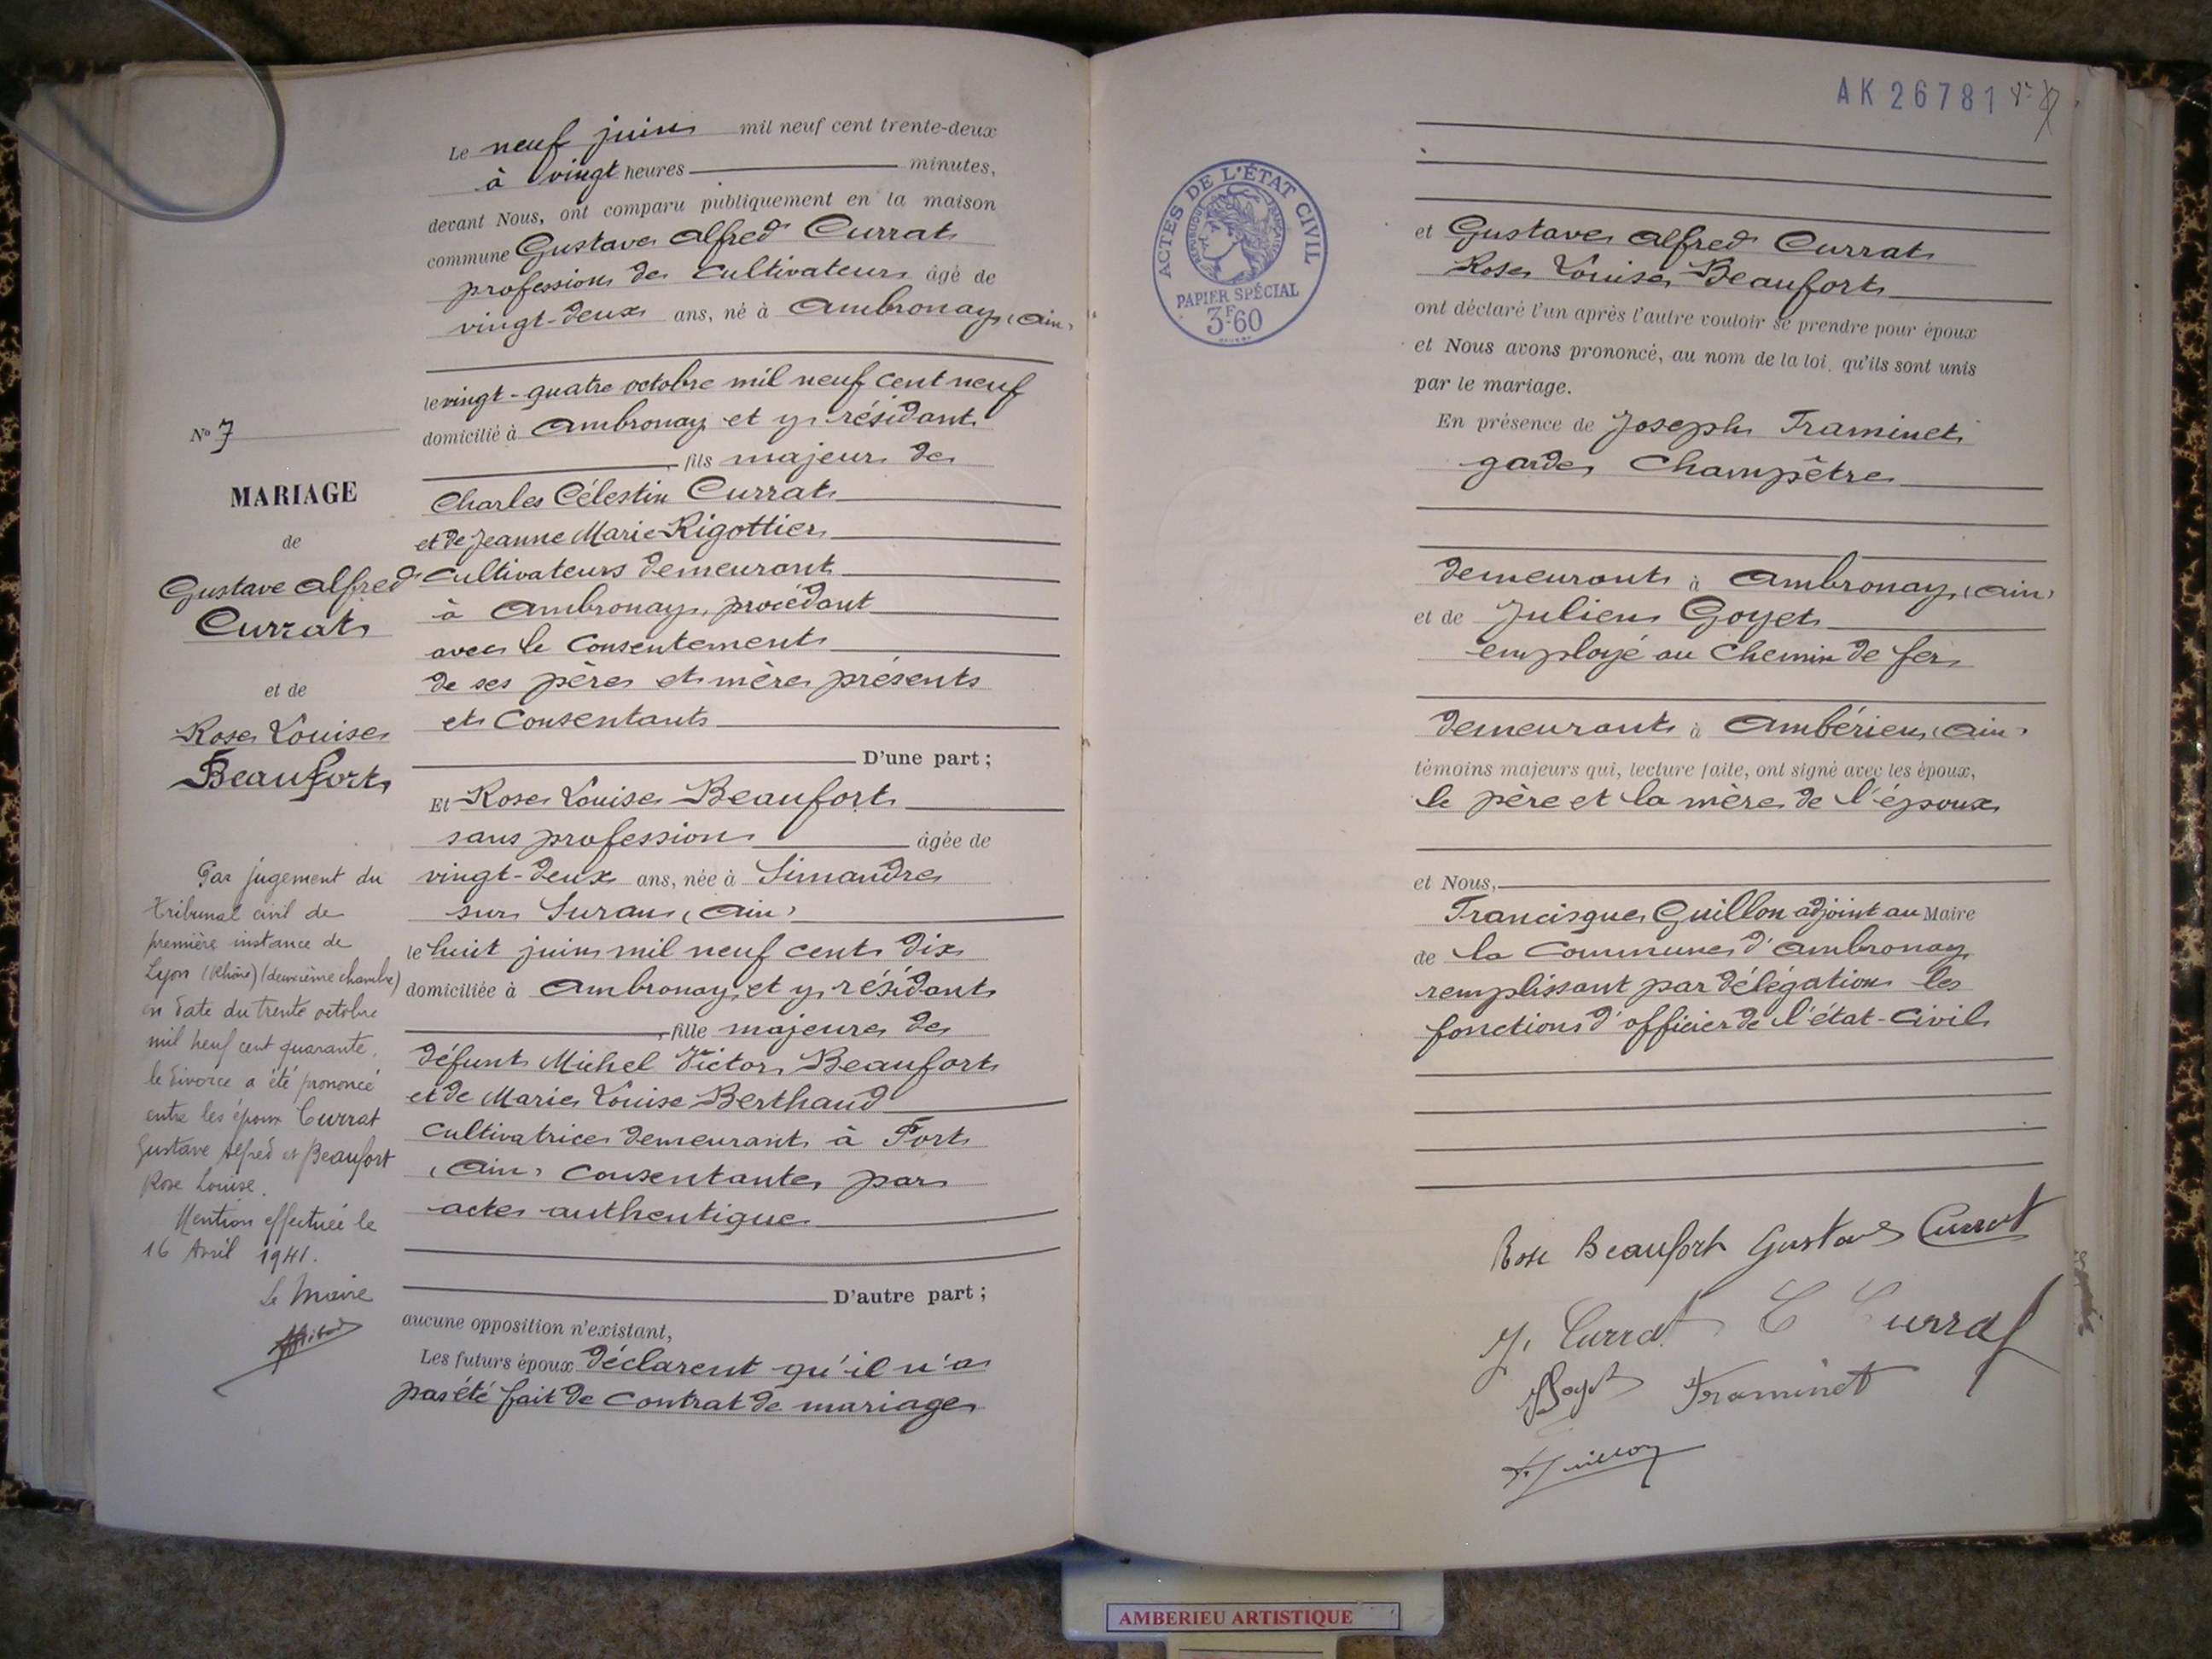 Le neuf juin mil neuf cent trente-deux
à vingt heures minutes,
devant Nous, ont comparu publiquement en la maison
commune Gustave Alfred Currat
profession de cultivateur âgé de
vingt-deux ans, né à Ambronay (Ain)
le vingt-quatre octobre mil neuf cent neuf
domicilié à Ambronay et y résidant
, fils majeur de
Charles Célestin Currat
et de Jeanne Marie Rigottier
cultivateurs demeurant
à Ambronay, procédant
avec le consentement
de ses père et mère présents
et consentants
D'une part ;
Et Rose Louise Beaufort
sans profession âgée de
vingt-deux ans, née à Simandre
sur Suran (Ain)
le huit juin mil neuf cent dix
domiciliée à Ambronay, et y résidant
, fille majeure de
défunt Michel Victor Beaufort
et de Marie Louise Berthaud
cultivatrice demeurant à Fort
(Ain) consentante par
acte authentique
D'autre part ;
aucune opposition n'existant,
Les futurs époux déclarent qu'il n'a
pas été fait de contrat de mariage
No 7
MARIAGE
de
Gustave Alfred
Currat
et de
Rose Louise
Beaufort
Par jugement du
tribunal civil de
première instance de
Lyon (Rhône) (deuxième chambre)
en date du trente octobre
mil neuf cent quarante,
le divorce a été prononcé
entre les époux Currat
Gustave Alfred et Beaufort
Rose Louise.
Mention effectuée le
16 Avril 1941.
Le Maire
AK 26781
ACTES DE L'ÉTAT CIVIL
RÉPUBLIQUE FRANÇAISE
PAPIER SPÉCIAL
3F.60
et Gustave Alfred Currat
Rose Louise Beaufort
ont déclaré l'un après l'autre vouloir se prendre pour époux
et Nous avons prononcé, au nom de la loi, qu'ils sont unis
par le mariage.
En présence de Joseph Framinet
garde champêtre
demeurant à Ambronay (Ain)
et de Julien Goyet
employé au chemin de fer
demeurant à Ambérieu (Ain)
témoins majeurs qui, lecture faite, ont signé avec les époux,
le père et la mère de l'époux
et Nous,
Francisque Guillon adjoint au Maire
de la Commune d'Ambronay
remplissant par délégation les
fonctions d'officier de l'état-civil
Rose Beaufort Gustave Currat
J. Currat C Currat
JGoyet Framinet
F. Guillon
AMBERIEU ARTISTIQUE